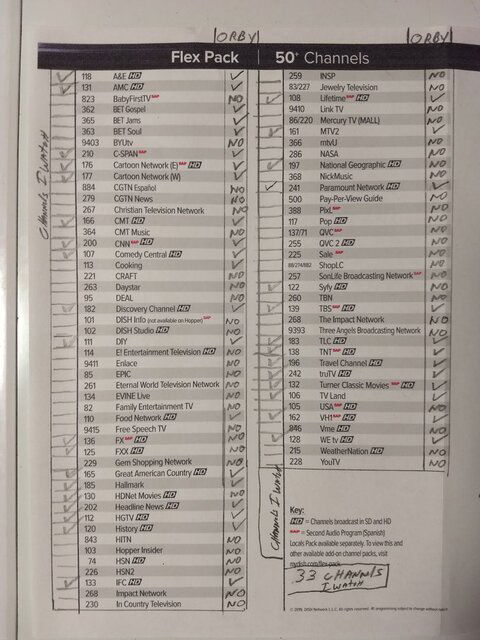 ORBY
ORBY
Flex Pack
CHANNELS I WATCH
118 A&E HD
131 AMC HD
823 BabyFirstTV SAP NO
362 BET Gospel
365 BET Jams
363 BET Soul
9403 BYUtv NO
210 C-SPAN SAP
176 Cartoon Network (E) SAP HD
177 Cartoon Network (W)
884 CGTN Español NO
279 CGTN News NO
267 Christian Television Network NO
166 CMT HD
364 CMT Music NO
200 CNN SAP HD
107 Comedy Central HD
113 Cooking
221 CRAFT NO
263 Daystar NO
95 DEAL NO
182 Discovery Channel HD
101 DISH Info (not available on Hopper) SAP NO
102 DISH Studio HD NO
111 DIY
114 E! Entertainment Television HD NO
9411 Enlace NO
85 EPIC NO
261 Eternal World Television Network NO
134 EVINE Live NO
82 Family Entertainment TV NO
110 Food Network HD
9415 Free Speech TV NO
136 FX SAP HD
125 FXX HD
229 Gem Shopping Network NO
165 Great American Country HD
185 Hallmark
130 HDNet Movies HD NO
202 Headline News HD
112 HGTV HD
120 History HD
843 HITN NO
103 Hopper Insider NO
74 HSN HD NO
226 HSN2 NO
133 IFC HD
268 Impact Network NO
230 In Country Television NO
50+ Channels
259 INSP NO
83/227 Jewelry Television NO
108 Lifetime SAP HD
9410 Link TV NO
86/220 Mercury TV (MALL) NO
161 MTV2
366 mtvU NO
286 NASA NO
197 National Geographic HD
368 NickMusic NO
241 Paramount Network HD
500 Pay-Per-View Guide NO
388 PixL SAP NO
117 Pop HD NO
137/71 QVC SAP NO
255 QVC 2 HD NO
225 Sale SAP NO
88/274/882 ShopLC NO
257 SonLife Broadcasting Network SAP NO
122 Syfy HD
260 TBN NO
139 TBS SAP HD
268 The Impact Network NO
9393 Three Angels Broadcasting Network NO
183 TLC HD
138 TNT SAP HD
196 Travel Channel HD
242 truTV HD
132 Turner Classic Movies SAP HD
106 TV Land
105 USA SAP HD NO
162 VH1 SAP HD
846 Vme HD NO
128 WE tv HD
215 WeatherNation HD NO
228 YouTV NO
CHANNELS I WATCH
Key:
HD = Channels broadcast in SD and HD
SAP = Second Audio Program (Spanish)
Locals Pack available separately. To view this and
other available add-on channel packs, visit
mydish.com/flex-pack
33 CHANNELS
I WATCH
© 2019, DISH Network L.L.C. All rights reserved. All programming subject to change without notice.